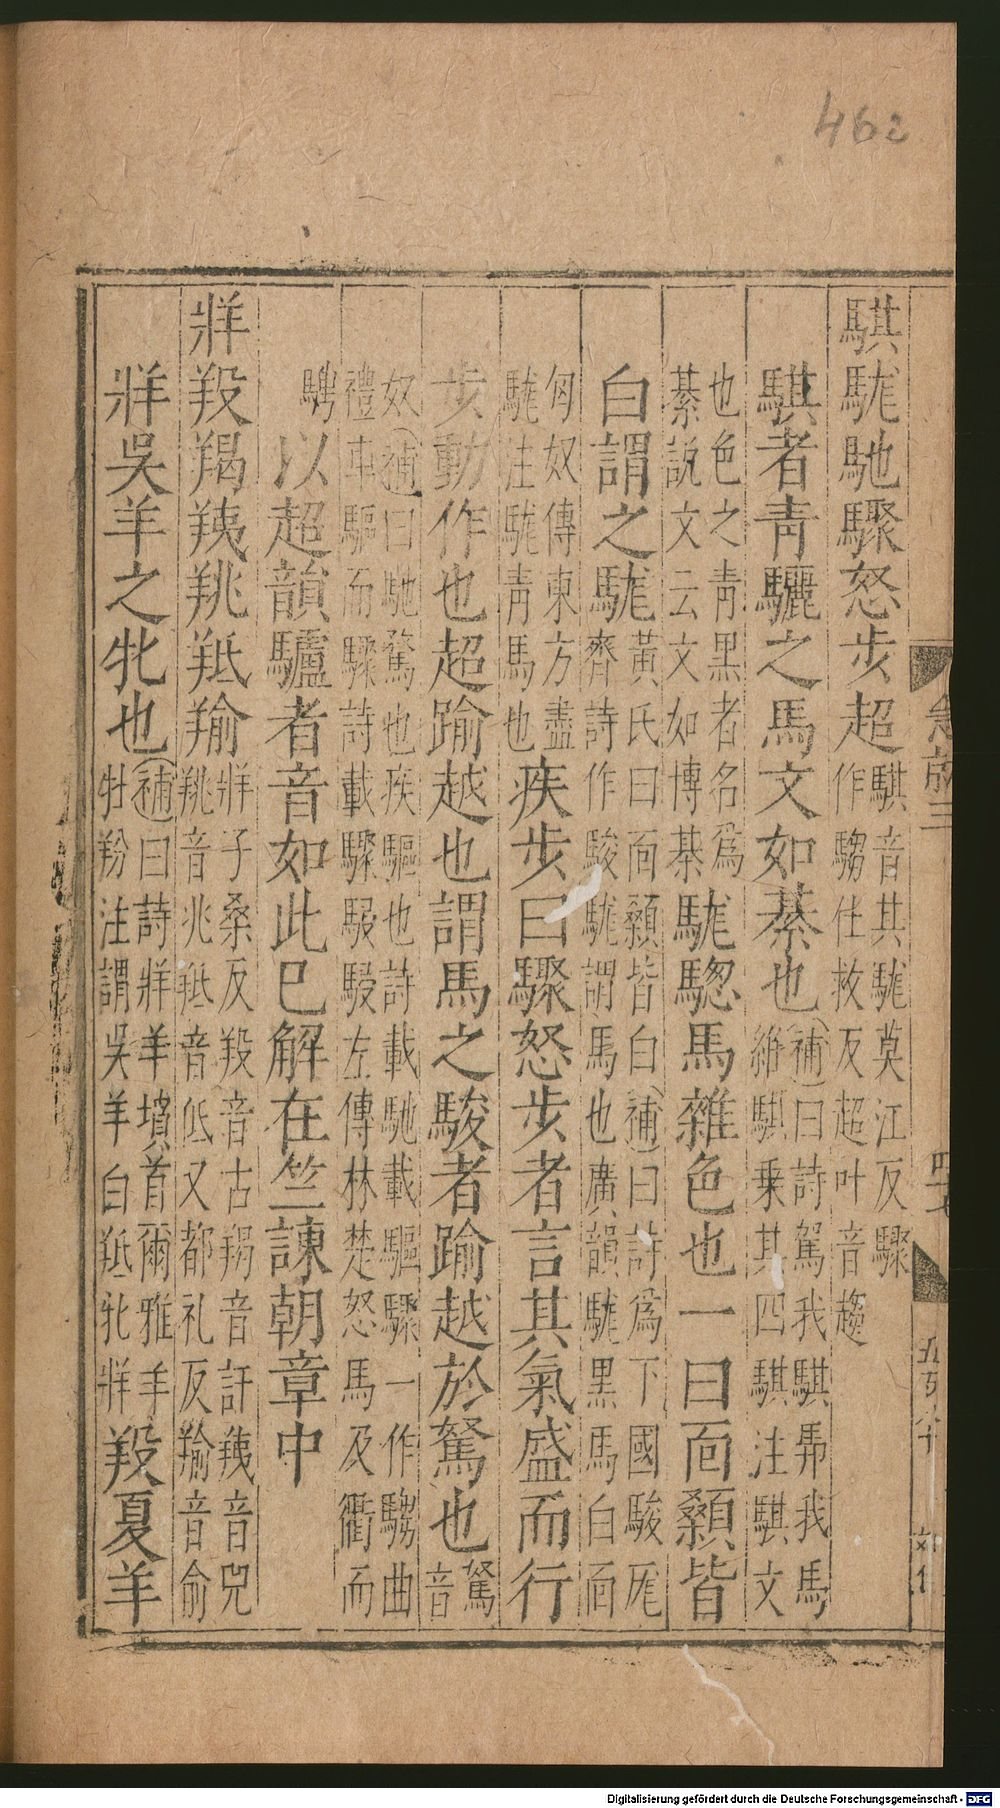 462
騏駹馳驟怒步超騏音其駹莫江反驟
作騶仕救反超叶音趨
騏者青驪之馬文如綦也(補)曰詩駕我騏馵我馬
維騏乗其四騏注騏文
也色之青黒者名爲
綦説文云文如博棊駹駹馬雜色也一曰面顙皆
白謂之駹黃氏曰面顙皆白(補)曰詩爲下國駿厖
齊詩作駿駹謂馬也廣韻駹黒馬白面
匈奴傳東方盡
駹注駹青馬也疾步曰驟怒步者言其氣盛而行
步動作也超踰越也謂馬之駿者踰越於駑也駑
音
奴(補)曰馳騖也疾驅也詩載馳載驅驟一作騶曲
禮車驅而驟詩載驟駸駸左傳林楚怒馬及衢而
騁以超韻驢者音如此巳解在竺諫朝章中
牂羖羯羠羝羭牂子桑反羖音古羯音訐羠音兕
羝音低又都礼反羭音俞
牂吳羊之牝也(補)曰詩牂羊墳首爾雅羊
牡羒注謂吳羊白羝牝牂羖夏羊
Digitalisierung gefördert durch die Deutsche Forschungsgemeinschaft - DFG